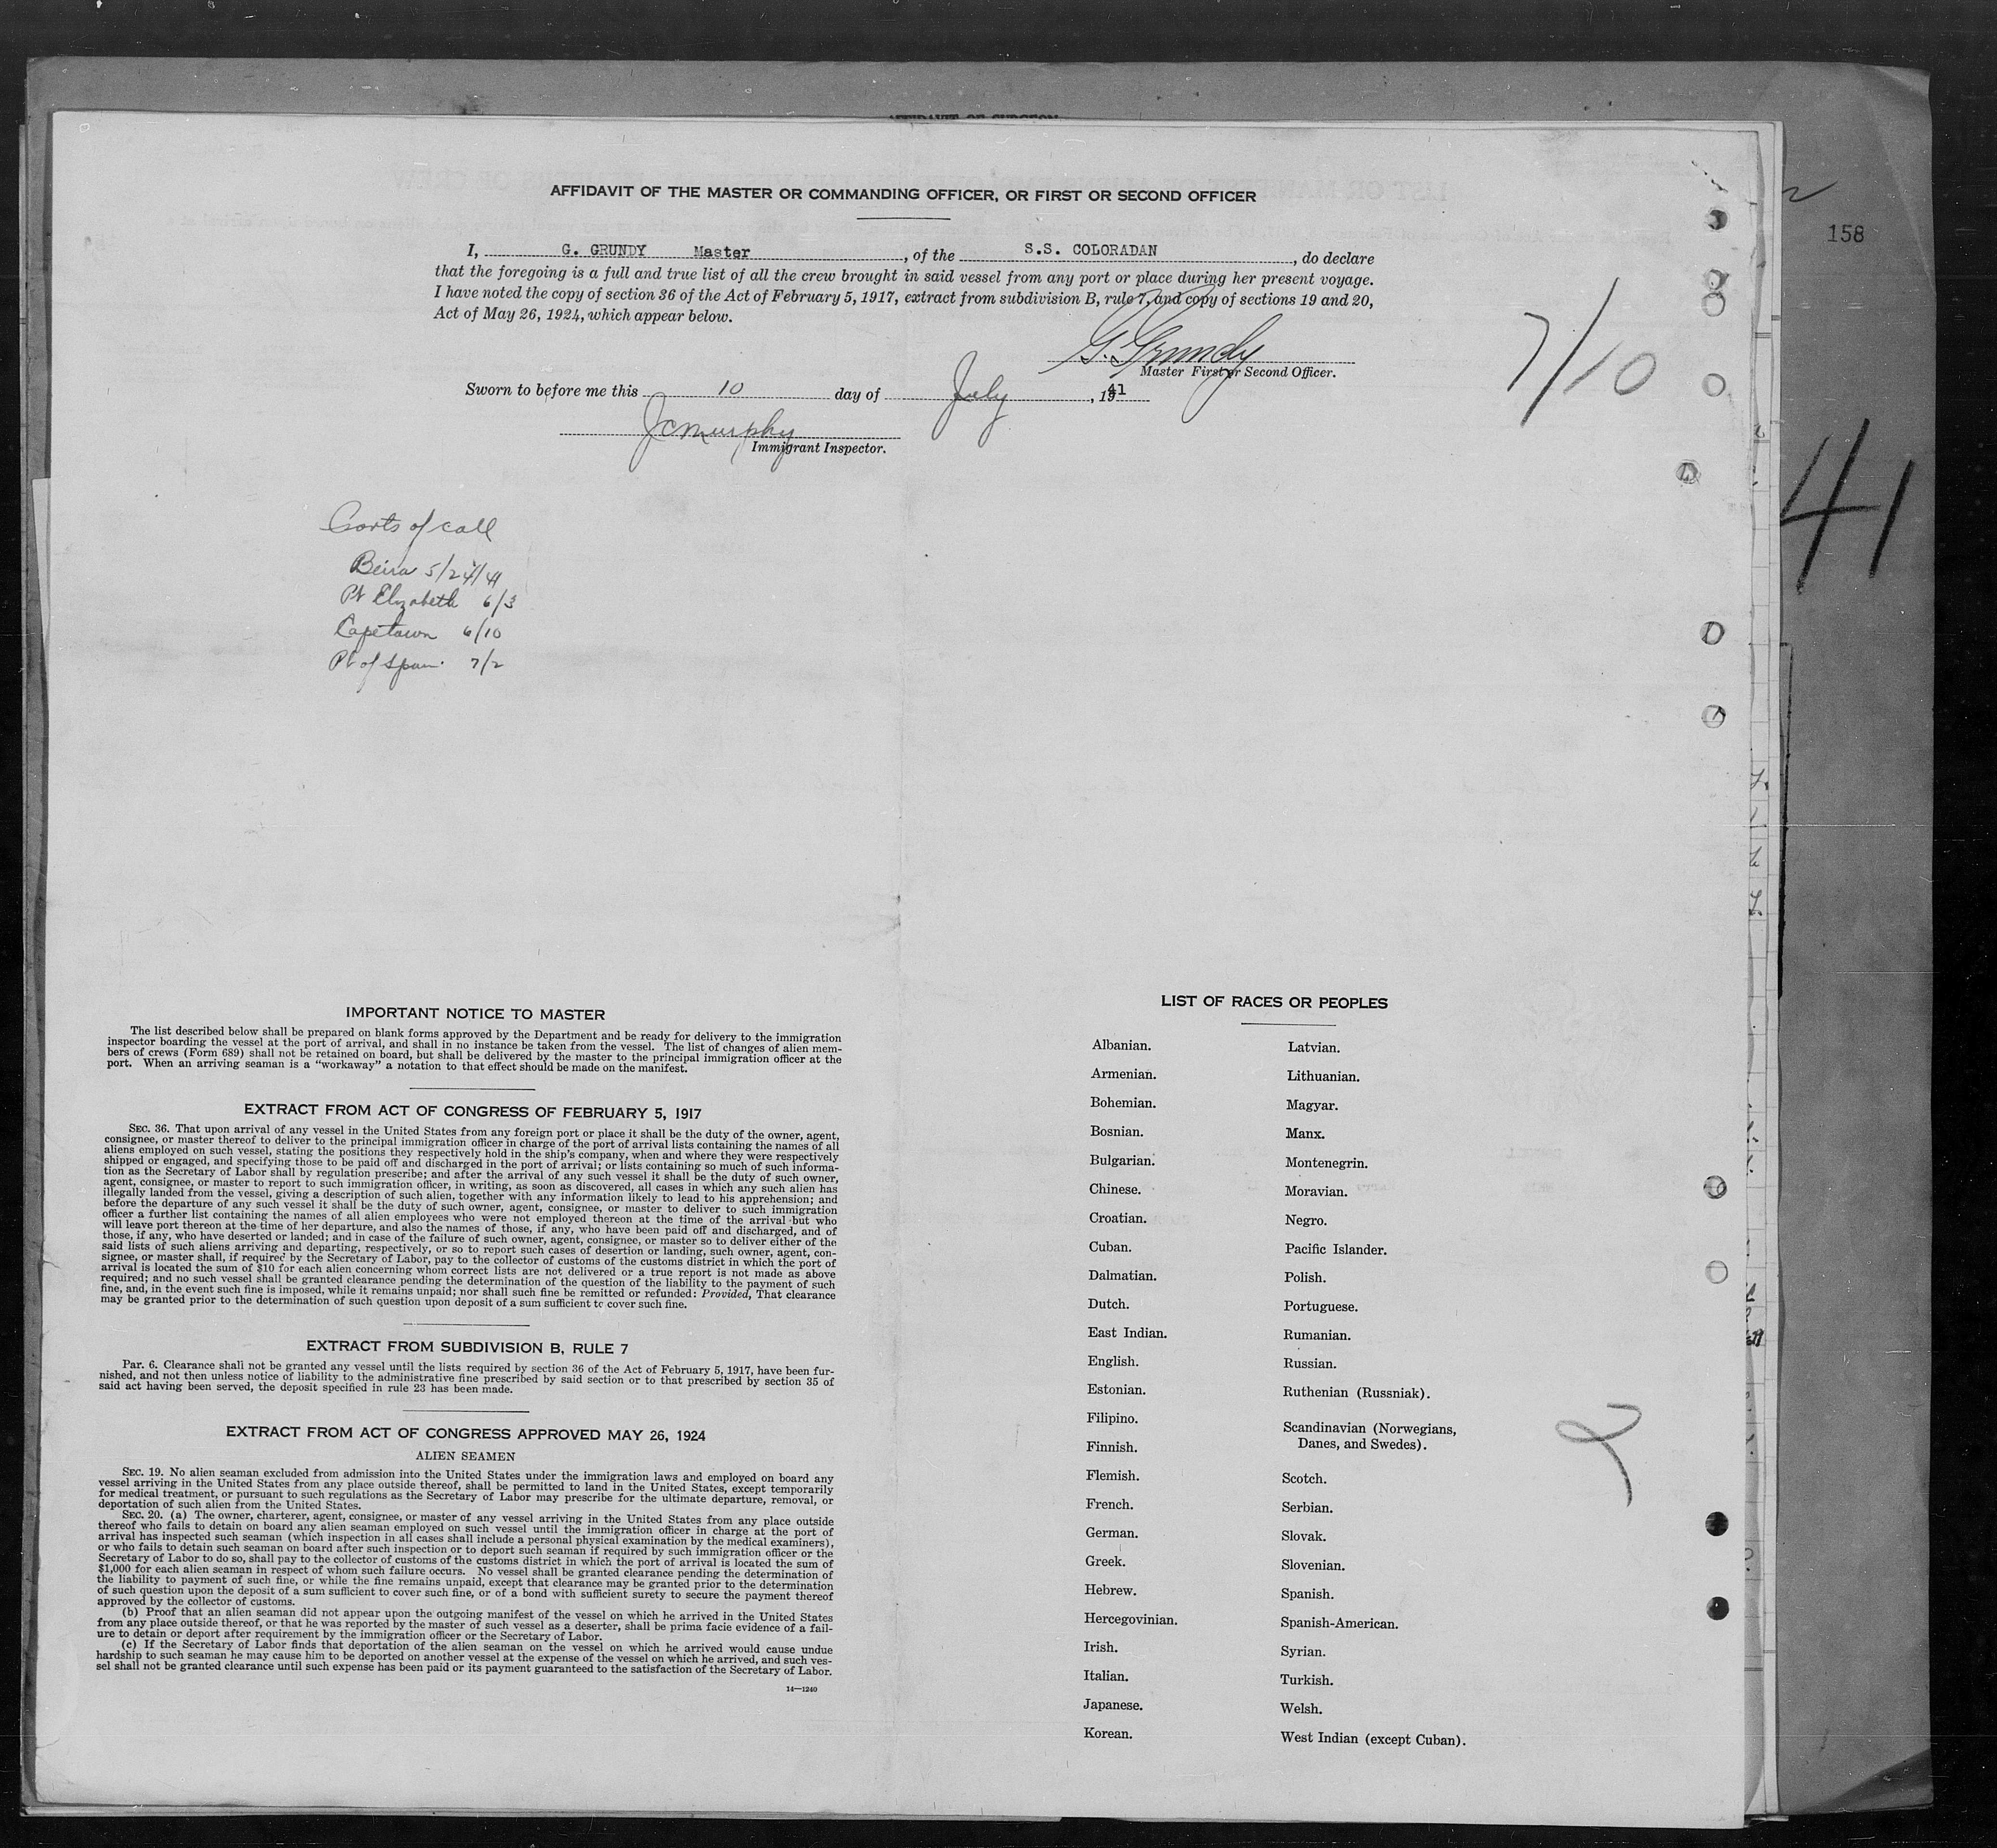 AFFIDAVIT OF SURGEON
AFFIDAVIT OF THE MASTER OR COMMANDING OFFICER, OR FIRST OR SECOND OFFICER
I, G. GRUNDY Master, of the S.S. COLORADAN, do declare
that the foregoing is a full and true list of all the crew brought in said vessel from any port or place during her present voyage.
I have noted the copy of section 36 of the Act of February 5, 1917, extract from subdivision B, rule 7, and copy of sections 19 and 20,
Act of May 26, 1924, which appear below.
G. Grundy
Master First or Second Officer.
Sworn to before me this 10 day of July, 1941
J C Murphy
Immigrant Inspector.
7/10
158
41
Ports of call
Beira 5/24/41
Pt Elizabeth 6/3
Capetown 6/10
Pt of Spain 7/2
IMPORTANT NOTICE TO MASTER
The list described below shall be prepared on blank forms approved by the Department and be ready for delivery to the immigration
inspector boarding the vessel at the port of arrival, and shall in no instance be taken from the vessel. The list of changes of alien mem-
bers of crews (Form 689) shall not be retained on board, but shall be delivered by the master to the principal immigration officer at the
port. When an arriving seaman is a "workaway" a notation to that effect should be made on the manifest.
EXTRACT FROM ACT OF CONGRESS OF FEBRUARY 5, 1917
SEC. 36. That upon arrival of any vessel in the United States from any foreign port or place it shall be the duty of the owner, agent,
consignee, or master thereof to deliver to the principal immigration officer in charge of the port of arrival lists containing the names of all
aliens employed on such vessel, stating the positions they respectively hold in the ship's company, when and where they were respectively
shipped or engaged, and specifying those to be paid off and discharged in the port of arrival; or lists containing so much of such informa-
tion as the Secretary of Labor shall by regulation prescribe; and after the arrival of any such vessel it shall be the duty of such owner,
agent, consignee, or master to report to such immigration officer, in writing, as soon as discovered, all cases in which any such alien has
illegally landed from the vessel, giving a description of such alien, together with any information likely to lead to his apprehension; and
before the departure of any such vessel it shall be the duty of such owner, agent, consignee, or master to deliver to such immigration
officer a further list containing the names of all alien employees who were not employed thereon at the time of the arrival but who
will leave port thereon at the time of her departure, and also the names of those, if any, who have been paid off and discharged, and of
those, if any, who have deserted or landed; and in case of the failure of such owner, agent, consignee, or master so to deliver either of the
said lists of such aliens arriving and departing, respectively, or so to report such cases of desertion or landing, such owner, agent, con-
signee, or master shall, if required by the Secretary of Labor, pay to the collector of customs of the customs district in which the port of
arrival is located the sum of $10 for each alien concerning whom correct lists are not delivered or a true report is not made as above
required; and no such vessel shall be granted clearance pending the determination of the question of the liability to the payment of such
fine, and, in the event such fine is imposed, while it remains unpaid; nor shall such fine be remitted or refunded: Provided, That clearance
may be granted prior to the determination of such question upon deposit of a sum sufficient to cover such fine.
EXTRACT FROM SUBDIVISION B, RULE 7
Par. 6. Clearance shall not be granted any vessel until the lists required by section 36 of the Act of February 5, 1917, have been fur-
nished, and not then unless notice of liability to the administrative fine prescribed by said section or to that prescribed by section 35 of
said act having been served, the deposit specified in rule 23 has been made.
EXTRACT FROM ACT OF CONGRESS APPROVED MAY 26, 1924
ALIEN SEAMEN
SEC. 19. No alien seaman excluded from admission into the United States under the immigration laws and employed on board any
vessel arriving in the United States from any place outside thereof, shall be permitted to land in the United States, except temporarily
for medical treatment, or pursuant to such regulations as the Secretary of Labor may prescribe for the ultimate departure, removal, or
deportation of such alien from the United States.
SEC. 20. (a) The owner, charterer, agent, consignee, or master of any vessel arriving in the United States from any place outside
thereof who fails to detain on board any alien seaman employed on such vessel until the immigration officer in charge at the port of
arrival has inspected such seaman (which inspection in all cases shall include a personal physical examination by the medical examiners),
or who fails to detain such seaman on board after such inspection or to deport such seaman if required by such immigration officer or the
Secretary of Labor to do so, shall pay to the collector of customs of the customs district in which the port of arrival is located the sum of
$1,000 for each alien seaman in respect of whom such failure occurs. No vessel shall be granted clearance pending the determination of
the liability to payment of such fine, or while the fine remains unpaid, except that clearance may be granted prior to the determination
of such question upon the deposit of a sum sufficient to cover such fine, or of a bond with sufficient surety to secure the payment thereof
approved by the collector of customs.
(b) Proof that an alien seaman did not appear upon the outgoing manifest of the vessel on which he arrived in the United States
from any place outside thereof, or that he was reported by the master of such vessel as a deserter, shall be prima facie evidence of a fail-
ure to detain or deport after requirement by the immigration officer or the Secretary of Labor.
(c) If the Secretary of Labor finds that deportation of the alien seaman on the vessel on which he arrived would cause undue
hardship to such seaman he may cause him to be deported on another vessel at the expense of the vessel on which he arrived, and such ves-
sel shall not be granted clearance until such expense has been paid or its payment guaranteed to the satisfaction of the Secretary of Labor.
14—1240
LIST OF RACES OR PEOPLES
Albanian.
Armenian.
Bohemian.
Bosnian.
Bulgarian.
Chinese.
Croatian.
Cuban.
Dalmatian.
Dutch.
East Indian.
English.
Estonian.
Filipino.
Finnish.
Flemish.
French.
German.
Greek.
Hebrew.
Hercegovinian.
Irish.
Italian.
Japanese.
Korean.
Latvian.
Lithuanian.
Magyar.
Manx.
Montenegrin.
Moravian.
Negro.
Pacific Islander.
Polish.
Portuguese.
Rumanian.
Russian.
Ruthenian (Russniak).
Scandinavian (Norwegians,
Danes, and Swedes).
Scotch.
Serbian.
Slovak.
Slovenian.
Spanish.
Spanish-American.
Syrian.
Turkish.
Welsh.
West Indian (except Cuban).